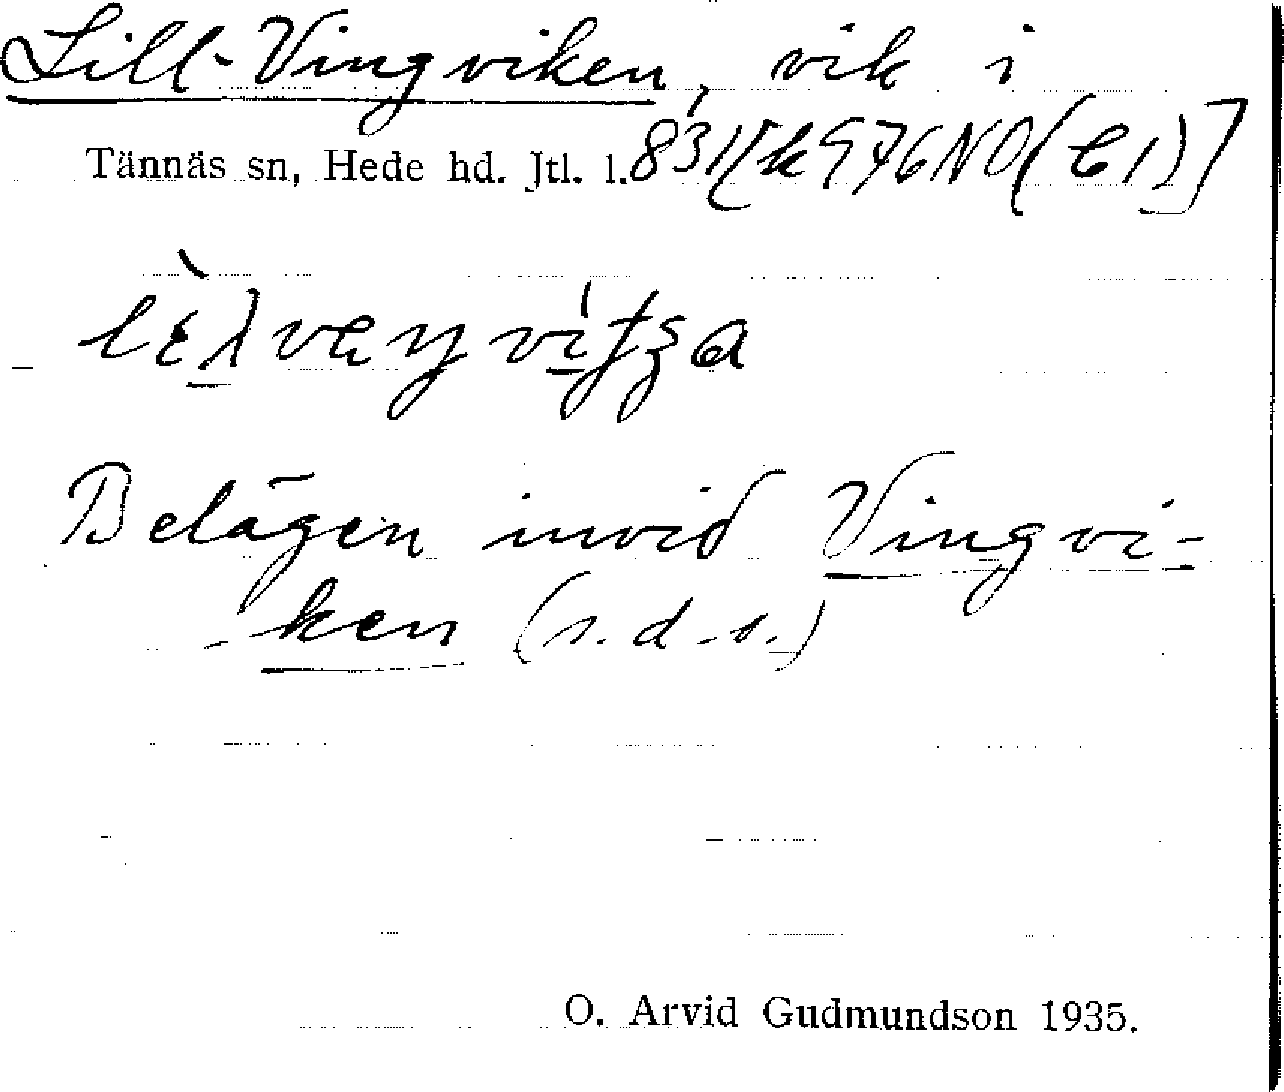 Lill-Vingviken, vik i
Tännäs sn, Hede hd. Jtl. l. 831[k976NO(C1)]
Belägen invid Vingvi-
ken (s.d.o.)
O. Arvid Gudmundson 1935.